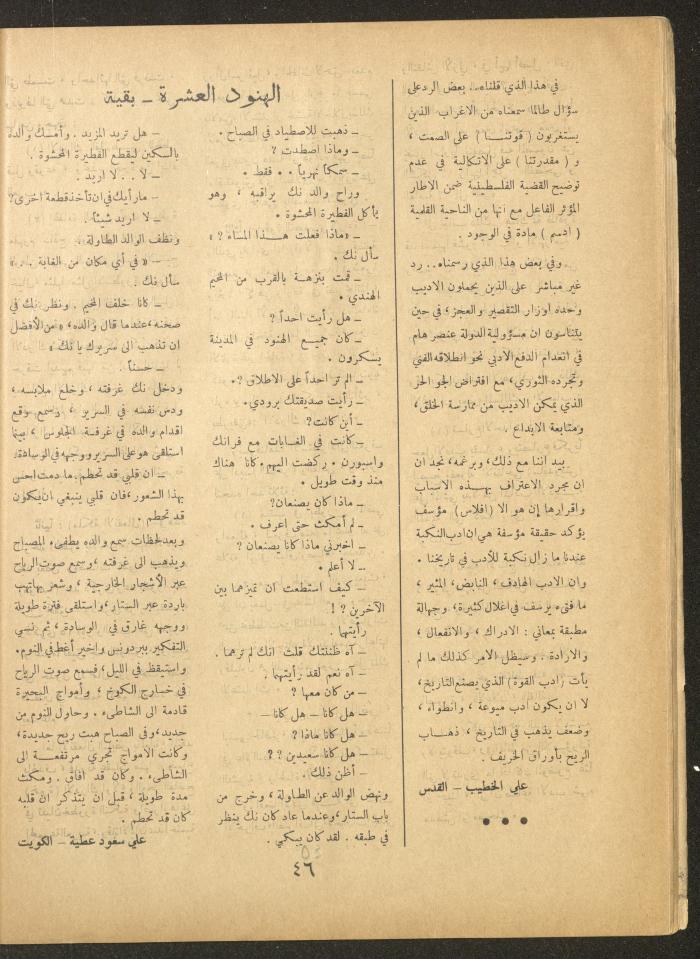 في هذا الذي قلناه.. بعض الرد على
سؤال طالما سمعناه من الاغراب الذين
يستغربون ( قوتنـا ) على الصمت ،
و ( مقدرتنا ) على الاتكالية في عدم
توضيح القضية الفلسطينية ضمن الاطار
المؤثر الفاعل مع انها من الناحية القلمية
( ادسم ) مادة في الوجود .
وفي بعض هذا الذي رسمناه.. رد
غير مباشر على الذين يحملون الاديب
وحده اوزار التقصير والعجز، في حين
يتناسون ان مسؤولية الدولة عنصر هام
في انعدام الدفع الادبي نحو انطلاقه الفني
وتجرده الثوري، مع افتراض الجو الحر
الذي يمكن الاديب من ممارسة الخلق،
ومتابعة الابداع .
بيد اننا مع ذلك، وبرغمه، نجد ان
ان مجرد الاعتراف بهـذه الاسباب
واقرارها إن هو الا ( افلاس ) مؤسف
يؤكد حقيقة مؤسفة هي ان ادب النكبة
عندنا ما زال نكبة للأدب في تاريخنا .
وان الادب الهادف، النابض، المثير ،
ما فتىء يرسف في اغلال كثيرة، وجهالة
مطبقة بمعاني : الادراك ، والانفعال ،
والارادة . وسيظل الامر كذلك ما لم
يأت ( ادب القوة ) الذي يصنع التاريخ ،
لا ان يكون أدب ميوعة ، وانطواء ،
وضعف يذهب في التاريخ ، ذهـاب
الريح بأوراق الخريف .
علي الخطيب – القدس
• • •
الهنود العشرة – بقية
– ذهبت للاصطياد في الصباح .
– وماذا اصطدت ؟
– سمكاً نهرياً . . فقط .
وراح والد نك يراقبه ، وهو
يأكل الفطيرة المحشوة .
– «ماذا فعلت هـذا المساء ؟ »
سأل نك .
– قمت بنزهة بالقرب من المخيم
الهندي .
– هل رأيت احداً ؟
– كان جميع الهنود في المدينة
يسكرون .
– الم تر احداً على الاطلاق ؟ .
– رأيت صديقتك برودي .
– أين كانت ؟
– كانت في الغابات مع فرانك
واسبورن . ركضت اليهم . كانا هناك
منذ وقت طويل .
– ماذا كان يصنعان ؟
– لم أمكث حتى اعرف .
– اخبرني ماذا كانا يصنعان ؟
– لا أعلم .
– كيف استطعت ان تميزهما بين
الآخرين ؟ !
رأيتها .
– آه ظننتك قلت انك لم ترهما .
– آه نعم لقد رأيتهما .
– من كان معها ؟
– هل كانا – هل كانا –
– هل كانا ماذا ؟
– هل كانا سعيدين ؟ ؟
– أظن ذلك .
ونهض الوالد عن الطاولة ، وخرج من
باب الستار، وعندما عاد كان نك ينظر
في طبقه . لقد كان يبكي .
– هل تريد المزيد . وأمسك والده
بالسكين ليقطع الفطيرة المحشوة .
– لا . . لا اريد .
– ما رأيك في ان تأخذ قطعة اخرى؟
– لا اريد شيئاً .
ونظف الوالد الطاولة .
– « في أي مكان من الغابة . . »
سأل نك .
– كانا خلف المخيم . ونظر نك في
صحنه ، عندما قال والده، « من الأفضل
ان تذهب الى سريرك يا نك »
– حسناً .
ودخل نك غرفته ، وخلع ملابسه ،
ودس نفسه في السرير ، وسمع وقع
اقدام والده في غرفـة الجلوس ، بينما
استلقى هو على السرير ووجهه في الوسادة،
– ان قلبي قد تحطم. ما دمت احس
بهذا الشعور، فان قلبي ينبغي ان يكون
قد تحطم .
وبعد لحظات سمع والده يطفىء المصباح
ويذهب الى غرفته ، وسمع صوت الرياح
عبر الأشجار الخارجية ، وشعر بها تهب
باردة عبر الستار، واستلقى فترة طويلة
ووجهه غارق في الوسادة ، ثم نسي
التفكير ببردونس واخير أغط في النوم .
واستيقظ في الليل، فسمع صوت الرياح
في خـارج الكوخ ، وأمواج البحيرة
قادمة الى الشاطىء . وحاول النوم من
جديد، وفي الصباح هبت ريح جديدة،
وكانت الامواج تجري مرتفعـة الى
الشاطىء . وكان قد افاق . ومكث
مدة طويلة ، قبل ان يتذكر ان قلبه
كان قد تحطم .
علي سعود عطية – الكويت
٤٦